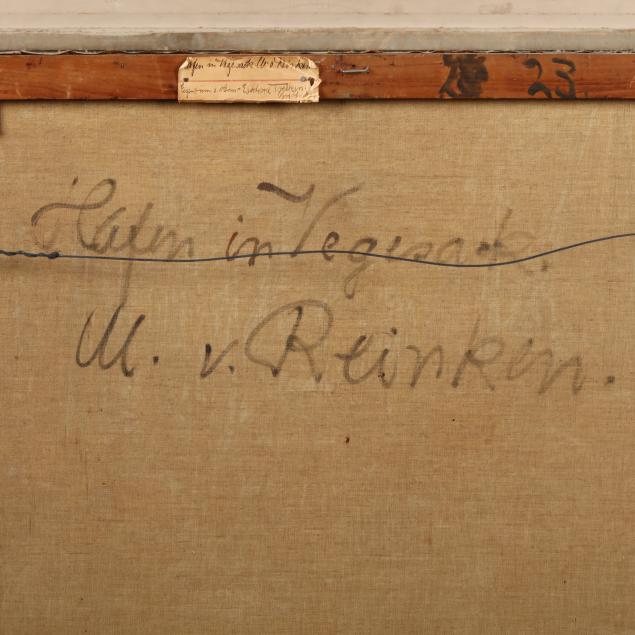 Hafen in Vegesack M. v. Reinken
23
Hafen in Vegesack.
M. v. Reinken.